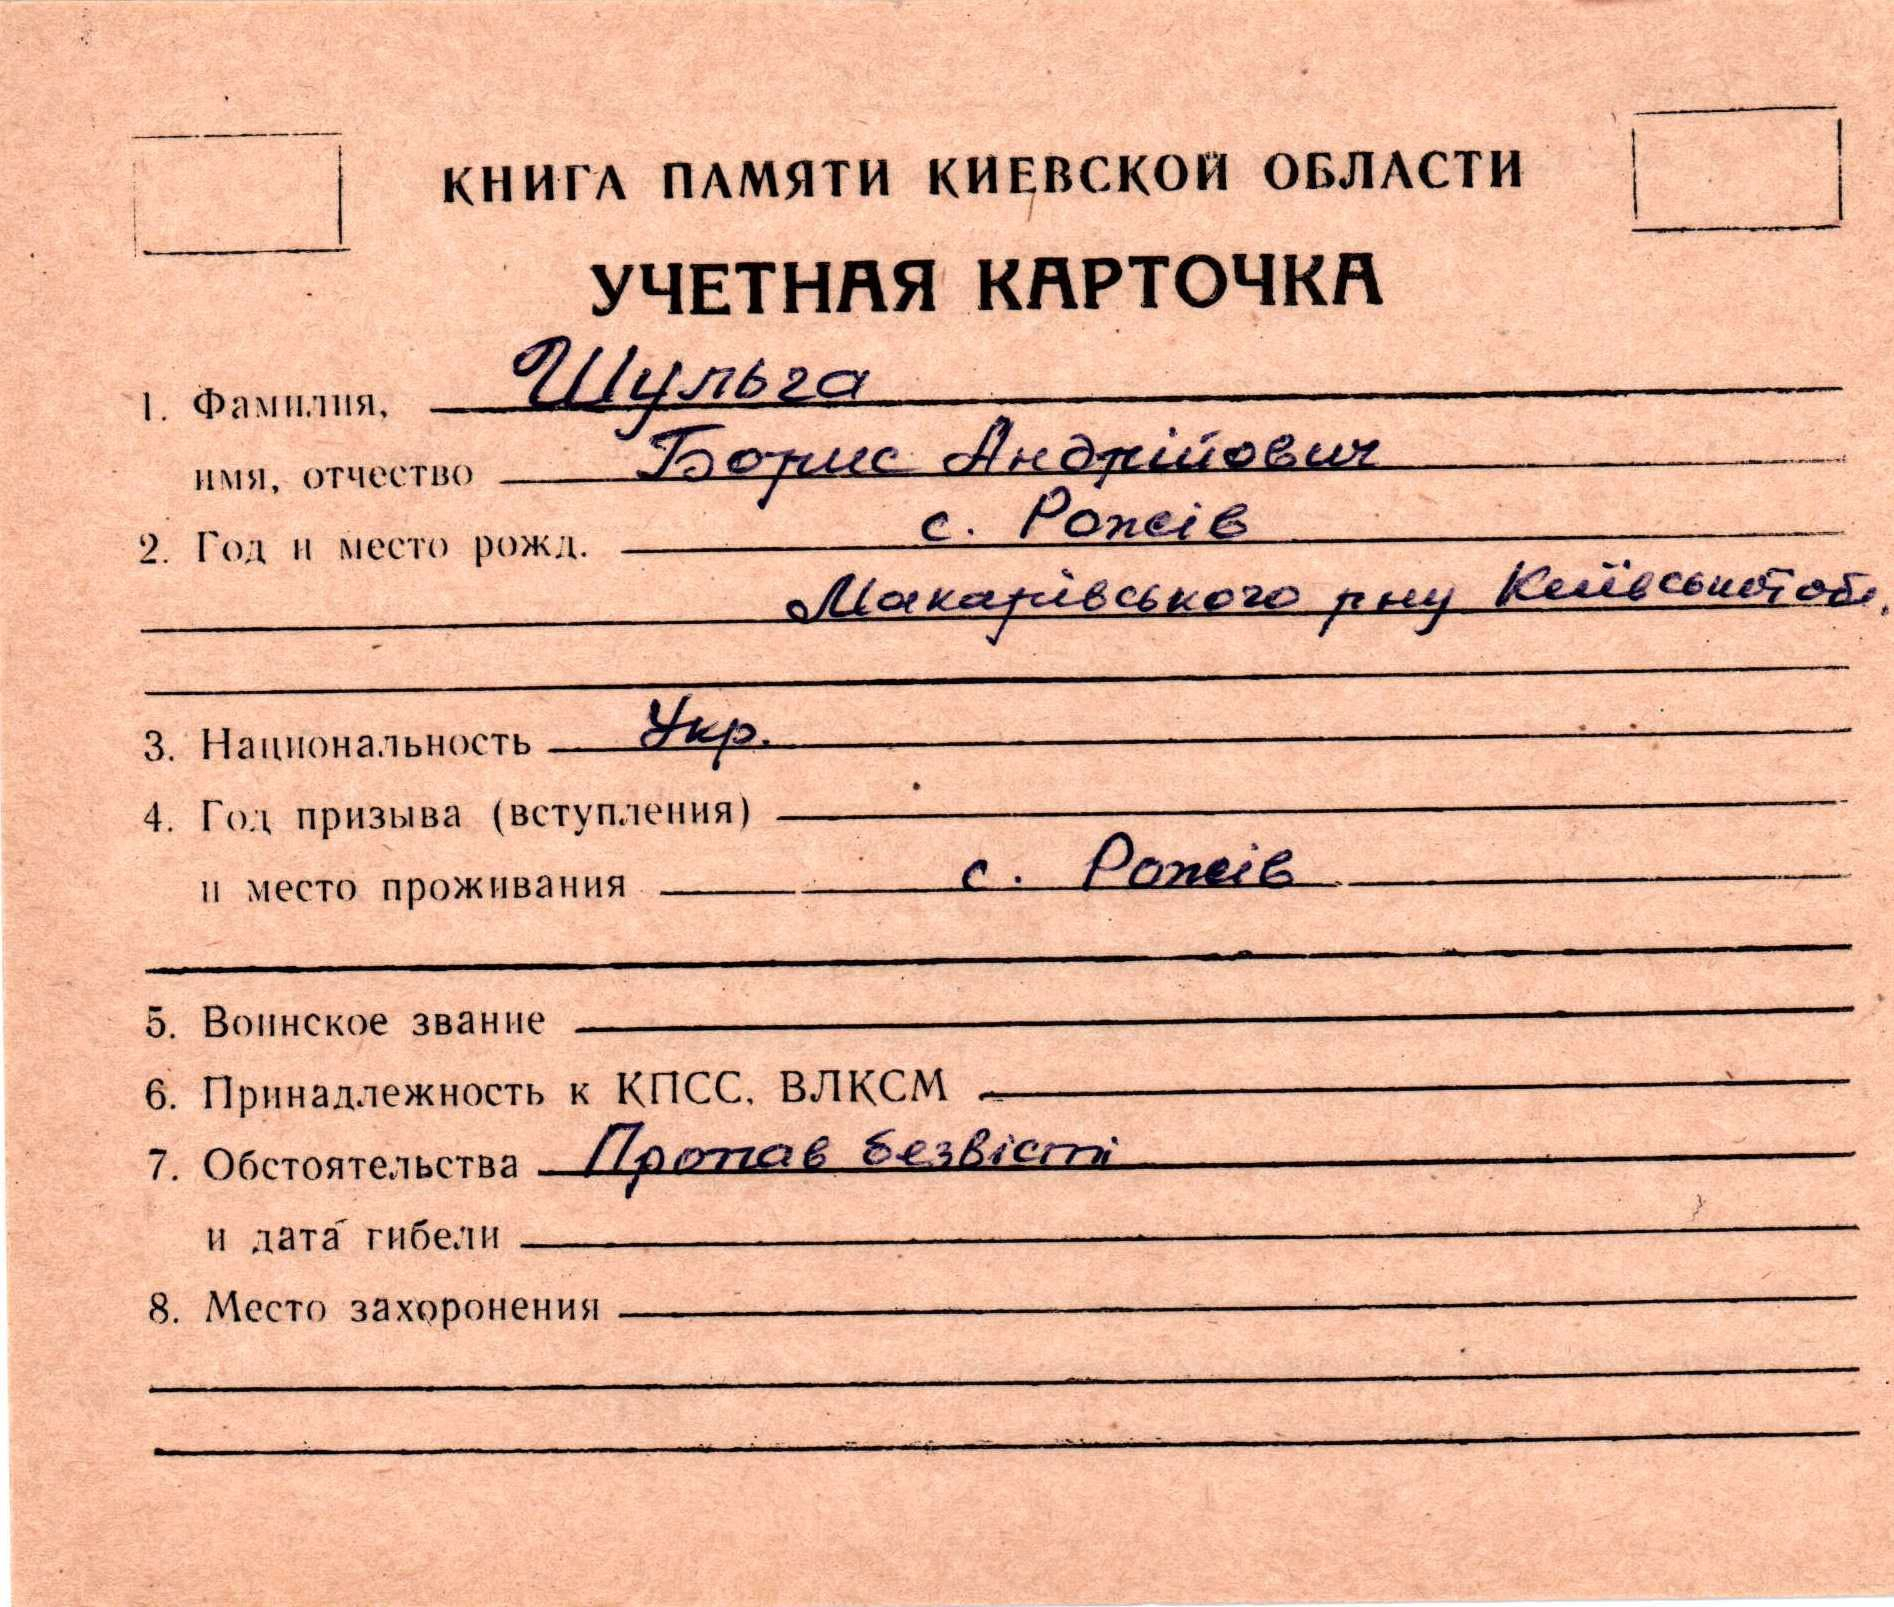 КНИГА ПАМЯТИ КИЕВСКОЙ ОБЛАСТИ
УЧЕТНАЯ КАРТОЧКА
1. Фамилия, Шульга
имя, отчество Борис Андрійович
2. Год и место рожд. с. Рожів
Макарівського рну Київської обл.
3. Национальность Укр.
4. Год призыва (вступления)
и место проживания с. Рожів
5. Воинское звание
6. Принадлежность к КПСС, ВЛКСМ
7. Обстоятельства Пропав безвісті
и дата гибели
8. Место захоронения